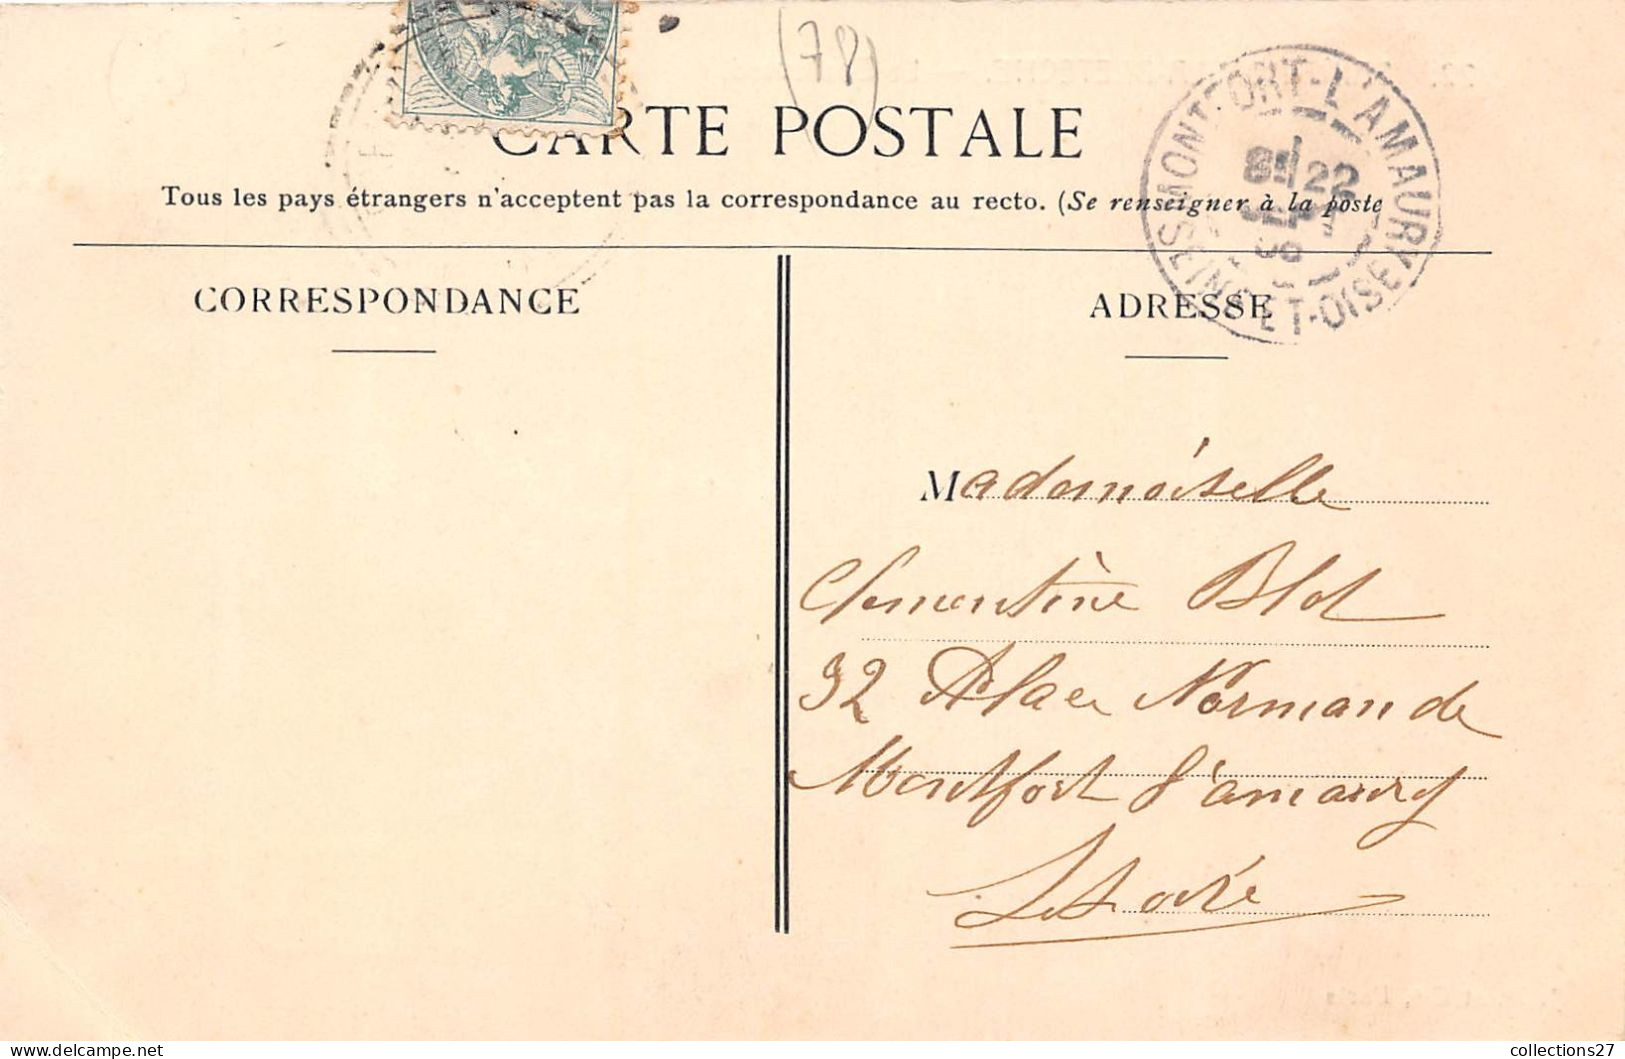 (78)
CARTE POSTALE
Tous les pays étrangers n'acceptent pas la correspondance au recto. (Se renseigner à la poste)
MONTFORT-L'AMAURY
22
SEPT
SEINE-ET-OISE
CORRESPONDANCE
ADRESSE
Mademoiselle
Clementine Blot
32 Place Normande
Montfort l'amaury
collections27